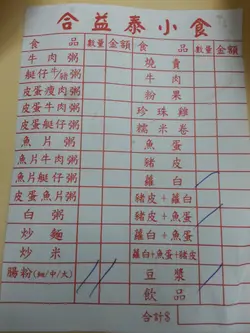 合益泰小食
食品 數量 金額 食品 數量 金額
牛肉粥 燒賣
艇仔粥 牛肉
皮蛋瘦肉粥 粉果
皮蛋牛肉粥 珍珠雞
皮蛋艇仔粥 糯米卷
魚片粥 魚蛋
魚片牛肉粥 豬皮
魚片艇仔粥 蘿白
皮蛋魚片粥 豬皮+蘿白
白粥 豬皮+魚蛋
炒麵 蘿白+魚蛋
炒米 蘿白+魚蛋+豬皮
腸粉(細/中/大) 豆漿
飲品
合計$